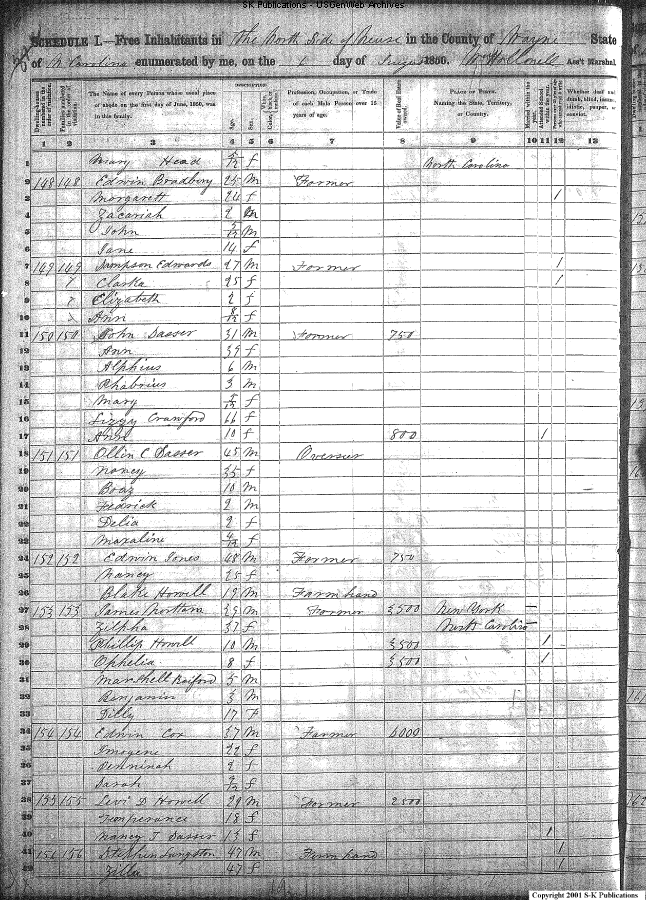 SK Publications - USGenWeb Archives
SCHEDULE I.—Free Inhabitants in The North Side of Neuse in the County of Wayne State
of N Carolina enumerated by me, on the day of 1850. Ass't Marshal
DESCRIPTION.
Dwelling-houses numbered in the order of visitation.
Families numbered in the order of visitation.
The Name of every Person whose usual place of abode on the first day of June, 1850, was in this family.
Age.
Sex.
Profession, Occupation, or Trade of each Male Person over 15 years of age.
Value of Real Estate owned.
PLACE OF BIRTH. Naming the State, Territory, or Country.
Married within the year.
Attended School within the year.
Whether deaf and dumb, blind, insane, idiotic, pauper, or convict.
1 2 3 4 5 6 7 8 9 10 11 12 13
1 Mary Head 5/12 f North Carolina
2 148 148 Edwin Bradbery 25 M Farmer
3 Margarett 24 f 1
4 Zacariah 2 M
5 John /12 M
6 Jane 14 f
7 149 149 Sampson Edwards 27 M Farmer 1
8 Clarka 25 f 1
9 Elizabeth 2 f
10 Ann 8/12 f
11 150 150 John Sasser 31 M Farmer 750
12 Ann 39 f
13 Alphius 6 M
14 Rhabrius 3 M
15 Mary /12 f
16 Lizzy Crawford 66 f
17 Ann 10 f 800 1
18 151 151 Ollin C Sasser 45 M Overseer
19 Nancy 35 f
20 Boaz 10 M
21 Fedrick 2 M
22 Delia 2 f
23 Mazaline 4/12 f
24 152 152 Edwin Jones 48 M Farmer 750
25 Nancy 25 f
26 Blake Howell 19 M Farm hand
27 153 153 James 39 M Farmer 3500 New York —
28 Zilpha 37 f North Carolina —
29 Phillip Howell 10 M 3500 1
30 Ophelia 8 f 3500 1
31 Marshell 5 M
32 Benjamin 3 M
33 Dilly 17 F
34 154 154 Edwin Cox 37 M Farmer 5000
35 Imogene 22 f
36 Penninah 2 f
37 Sarah /12 f
38 155 155 Levi D Howell 29 M Farmer 2500
39 Temperance 18 f
40 Nancy J Sasser 13 f 1
41 156 156 Stephen Langston 47 M Farm hand 1
42 Zilla 47 f 1
Copyright 2001 S-K Publications